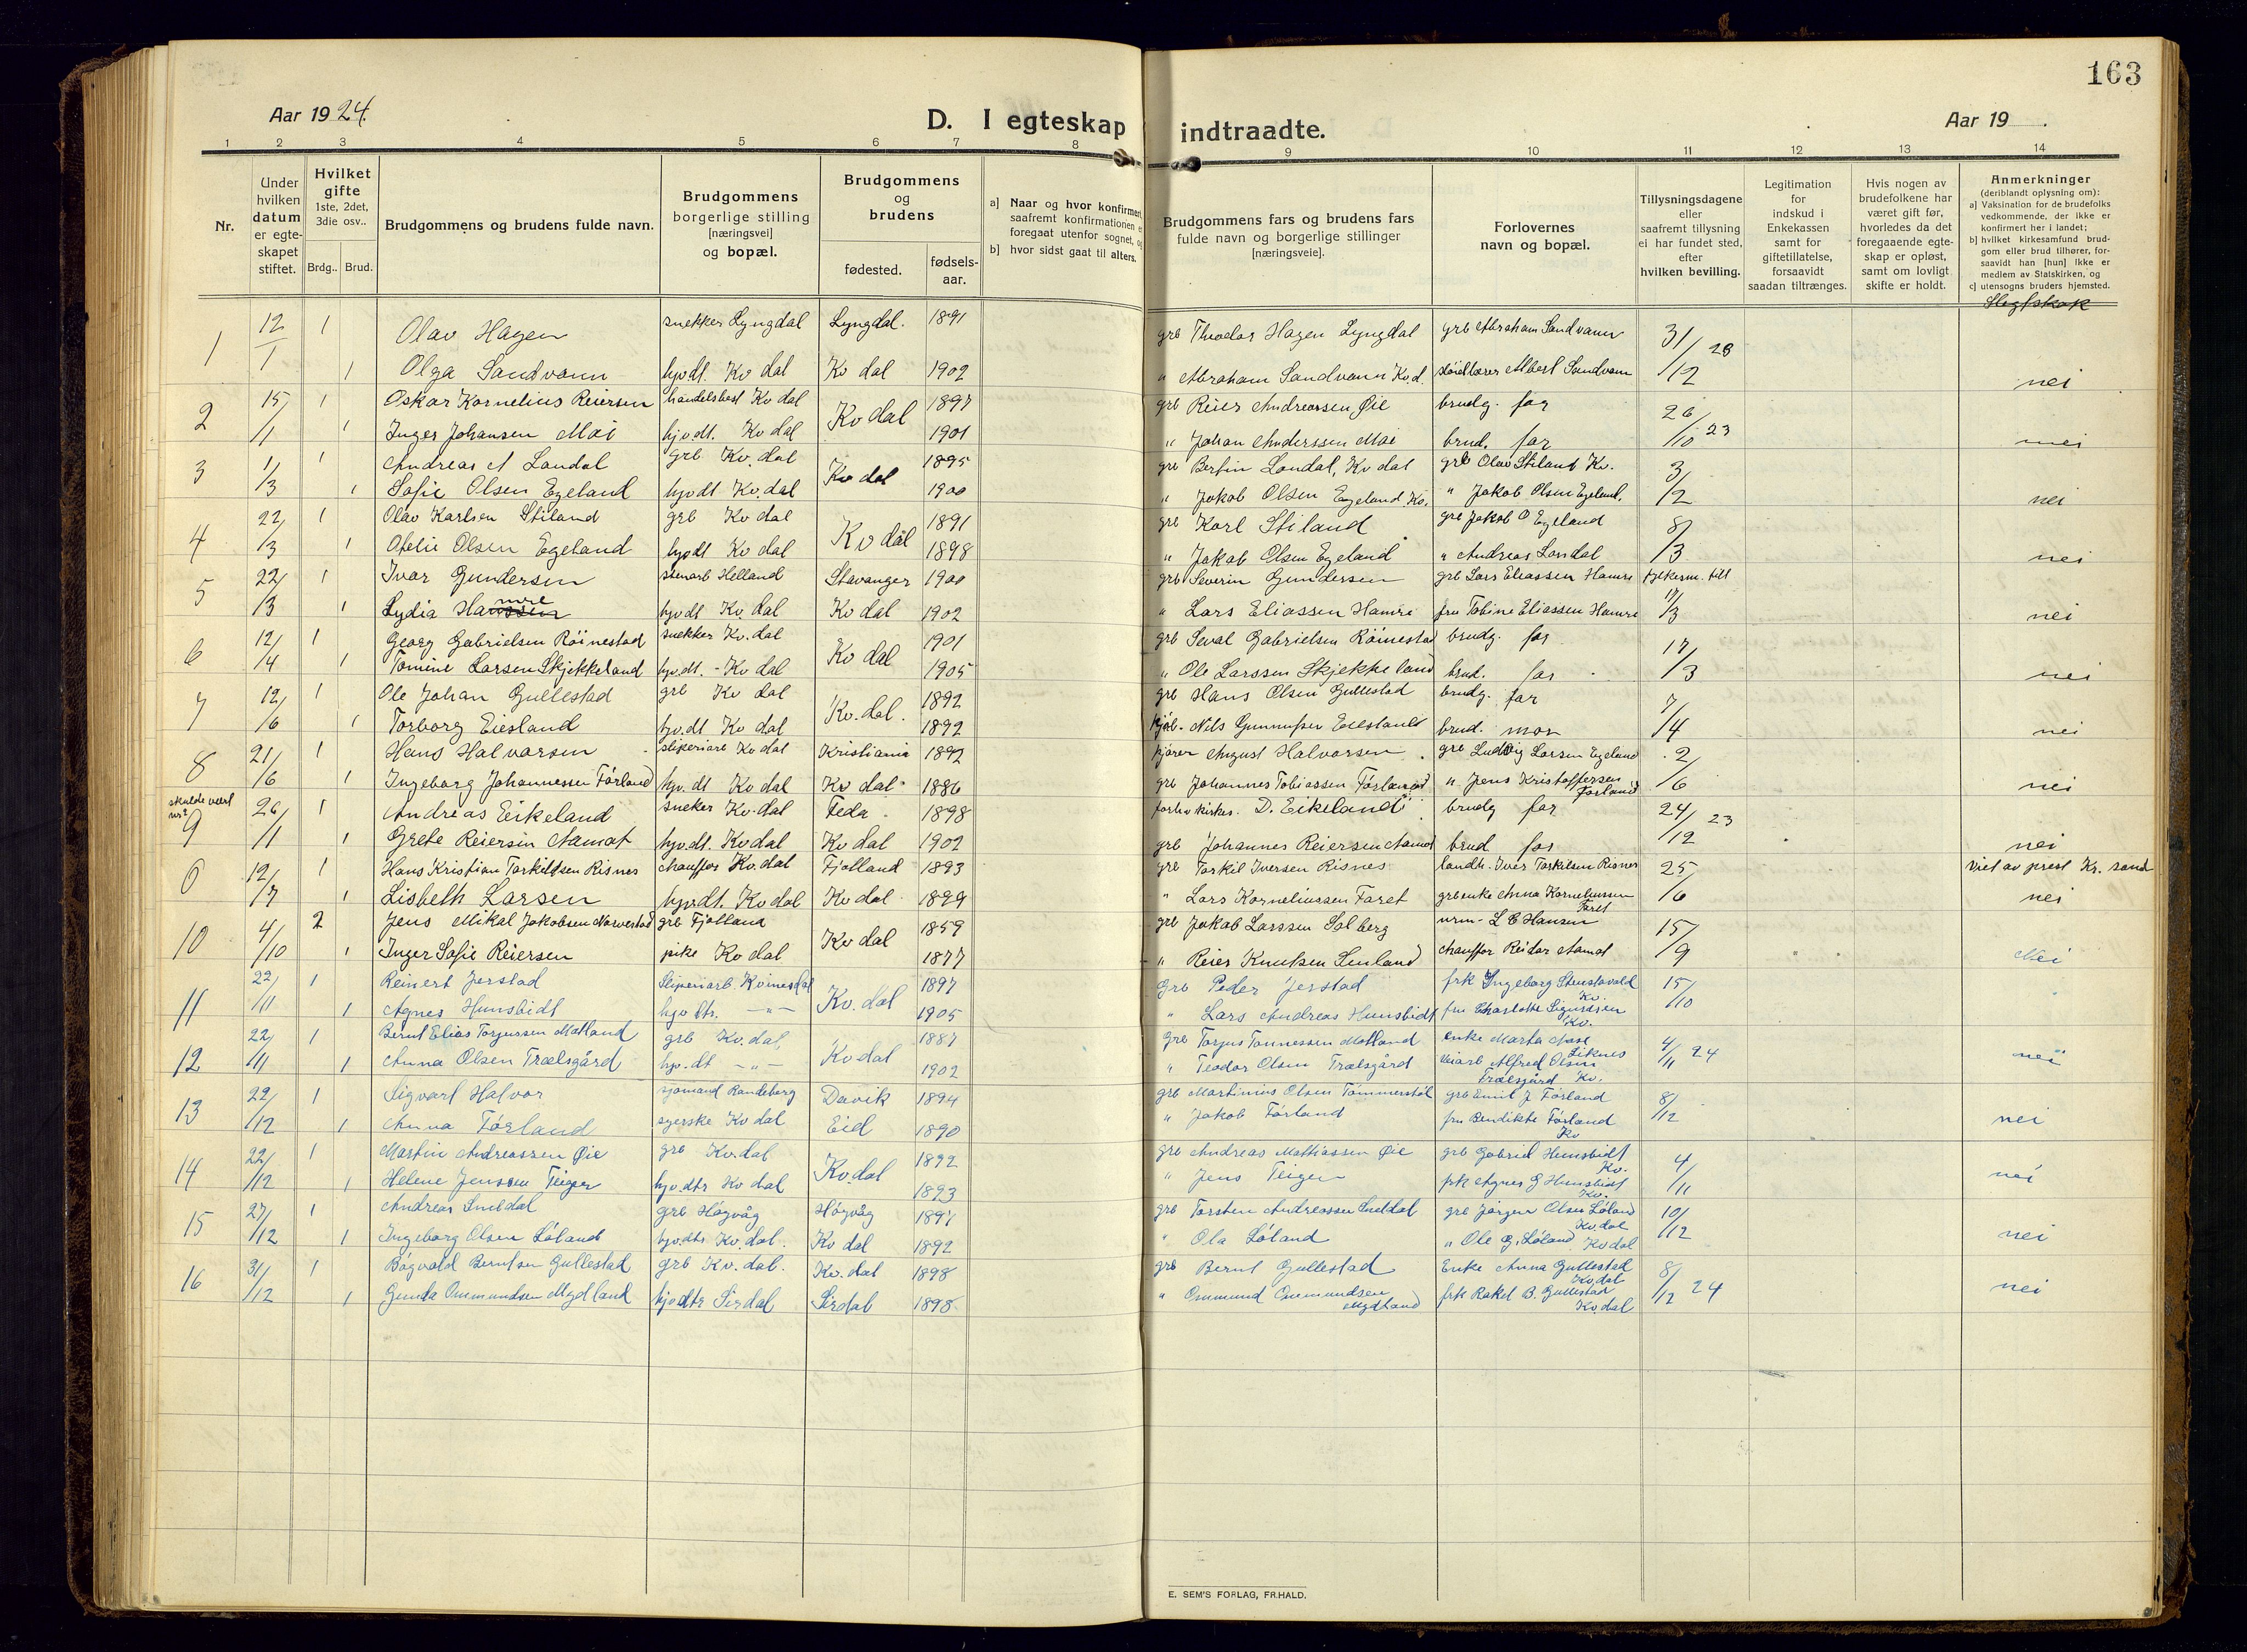 163
Aar 1924.
D. I egteskap indtraadte.
Aar 19 .
1 2 3 4 5 6 7 8 9 10 11 12 13 14
Nr.
Under hvilken datum er egteskapet stiftet.
Hvilket gifte 1ste, 2det, 3die osv..
Brdg.. Brud.
Brudgommens og brudens fulde navn.
Brudgommens borgerlige stilling [næringsvei] og bopæl.
Brudgommens og brudens
fødested.
fødsels-aar.
a] Naar og hvor konfirmert, saafremt konfirmationen foregaat utenfor sognet, og
b] hvor sidst gaat til alters.
Brudgommens fars og brudens fars fulde navn og borgerlige stillinger [næringsveie].
Forlovernes navn og bopæl.
Tillysningsdagene eller saafremt tillysning ei har fundet sted, efter hvilken bevilling.
Legitimation for indskud i Enkekassen samt for giftetillatelse, forsaavidt saadan tiltrænges.
Hvis nogen av brudefolkene har været gift før, hvorledes da det foregaaende egteskap er opløst, samt om lovligt skifte er holdt.
Anmerkninger
(deriblandt oplysning om):
a] Vaksination for de brudefolks vedkommende, der ikke er konfirmert her i landet;
b] hvilket kirkesamfund brudgom eller brud tilhører, forsaavidt han [hun] ikke er medlem av Statskirken, og
c] utensogns bruders hjemsted.
Slegtskap
1 12/1 1 Olav Hagen snekker Lyngdal Lyngdal. 1891 grb Theodor Hagen Lyngdal grb Abraham Sandvann 31/12 23
1 Olga Sandvann hjv.dt. Kv dal Kv dal 1902 " Abraham Sandvann Kv.d. sløidlærer Albert Sandvann nei
2 15/1 1 Oskar Kornelius Reiersen handelsbest Kv dal Kv dal 1897 grb Reier Andreassen Øie brudg. far 26/10 23
1 Inger Johansen Moi hjv.dt. Kv dal 1901 " Johan Anderssen Moi brud. far nei
3 1/3 1 Andreas A Londal grb Kv. dal Kv dal 1895 grb Bertin Londal, Kv dal grb Olav Stiland Kv. 3/2
1 Sofie Olsen Egeland hjvdt Kv. dal 1900 " Jakob Olsen Egeland Kv. " Jakob Olsen Egeland. nei
4 22/3 1 Olav Karlsen Stiland grb Kv dal Kv dal 1891 grb Karl Stiland grb Jakob O Egeland 8/3
1 Ofelie Olsen Egeland hjvdt Kv dal 1898 " Jakob Olsen Egeland " Andreas Londal nei
5 22/3 1 Ivar Gundersen stenarb Helland Stavanger 1900 grb Severin Gundersen grb Lars Eliassen Hamre fylkesm. till
1 Lydia Hanssen mre hjvdt Kv. dal Kv dal 1902 " Lars Eliassen Hamre fru Tobine Eliassen Hamre 17/3 nei
6 12/4 1 Georg Gabrielsen Röinestad snekker Kv. dal Kv dal 1901 grb Seval Gabrielsen Röinestad brudg. far 17/3
1 Tomine Larsen Skjekkeland hjv.dt. - Kv dal 1905 " Ole Larssen Skjekkeland brud. far nei
7 12/6 1 Ole Johan Gullestad grb Kv dal Kv. dal. 1892 grb Hans Olsen Gullestad brudg. far 7/4
1 Torborg Eiesland hjv.dt Kv dal 1892 Nils Gunnufsen Eiesland brud. mor nei
8 21/6 1 Hans Halvorsen Kv dal Kristiania 1892 August Halvorsen grb Ludvig Larsen Egeland 2/6
1 Ingeborg Johannessen Förland hjv. dt Kv dal Kv dal 1886 grb Johannes Tobiassen Förland " Jens Kristoffersen Förland nei
skulde vært nr 2
9 26/1 1 Andreas Eikeland sneker Kv. dal Feda 1898 D. Eikeland brudg far 24/12 23
1 Grete Reiersen Aamot hjv.dt. Kv dal Kv dal 1902 grb Johannes Reiersen Aamot brud far nei
0 12/7 1 Hans Kristian Torkildsen Risnes chauffør Kv. dal Fjotland 1893 grb Torkil Iversen Risnes landh. Iver Torkilsen Risnes 25/6 Viet av prest Kr. sand
1 Lisbeth Larsen hjvdt. Kv dal Kv dal 1899 " Lars Korneliussen Faret grbenke Anna Korneliussen Faret nei
10 4/10 2 Jens Mikal Jakobsen Narvestad grb Fjotland Kv dal 1859 grb Jakob Larssen Solberg urm. L C Hansen 15/9
1 Inger Sofie Reiersen pike Kv dal 1877 " Reier Knutsen Senland chauffør Reidar Aamot Nei
11 22/11 1 Reinert Jerstad Sliperiarb. Kvinesdal Kv. dal 1897 Grb Peder Jerstad frk Ingeborg Stenstavold Kv. 15/10
1 Agnes Hunsbidt hjv dtr. -"- 1905 " Lars Andreas Hunsbidt fru Charlotte Sigurdsen Kv.
12 22/11 1 Bernt Elias Torjussen Matland grb Kv. dal Kv dal 1887 Grb Torjus Tønnessen Matland enke Marta Aase Liknes 4/11 24
1 Anna Olsen Trælsgård hjv.dt -"- 1902 " Teodor Olsen Trælsgård veiarb Alfred Olsen Trælsgård Kv. nei
13 22/12 1 Sigvart Halvor sjømand Randeberg Davik 1894 grb Martinius Olsen Tömmerstöl grb Emil J Förland 8/12
1 Anna Förland syerske Kv dal Eid 1890 " Jakob Förland fru Bendikte Förland Kv nei
14 22/12 1 Martin Andreassen Øie grb Kv. dal Kv. dal 1892 grb Andreas Mathiassen Øie grb Gabriel Hunsbidt Kv. 4/11
1 Helene Jenssen Teigen hjv.dtr Kv dal 1893 " Jens Teigen frk Agnes G Hunsbidt Kv. nei
15 27/12 1 Andreas Sneldal grb Högvåg Högvåg 1897 grb Torsten Andreassen Sneldal grb Jørgen Olsen Löland Kv dal 10/12
1 Ingeborg Olsen Löland hjv.dtr Kv. dal. Kv dal 1892 " Ola Löland " Ole G. Löland Kv dal nei
16 31/12 1 Bögvald Berntsen Gullestad grb Kv. dal. Kv. dal 1898 grb Bernt Gullestad Enke Anna Gullestad Kv. dal 8/12 24
1 Gunda Ommundsen Mydland hjvdtr Sirdal Sirdal 1898 " Ommund Ommundsen Mydland frk Rakel B. Gullestad Kv dal nei
E. SEM'S FORLAG, FR.HALD.